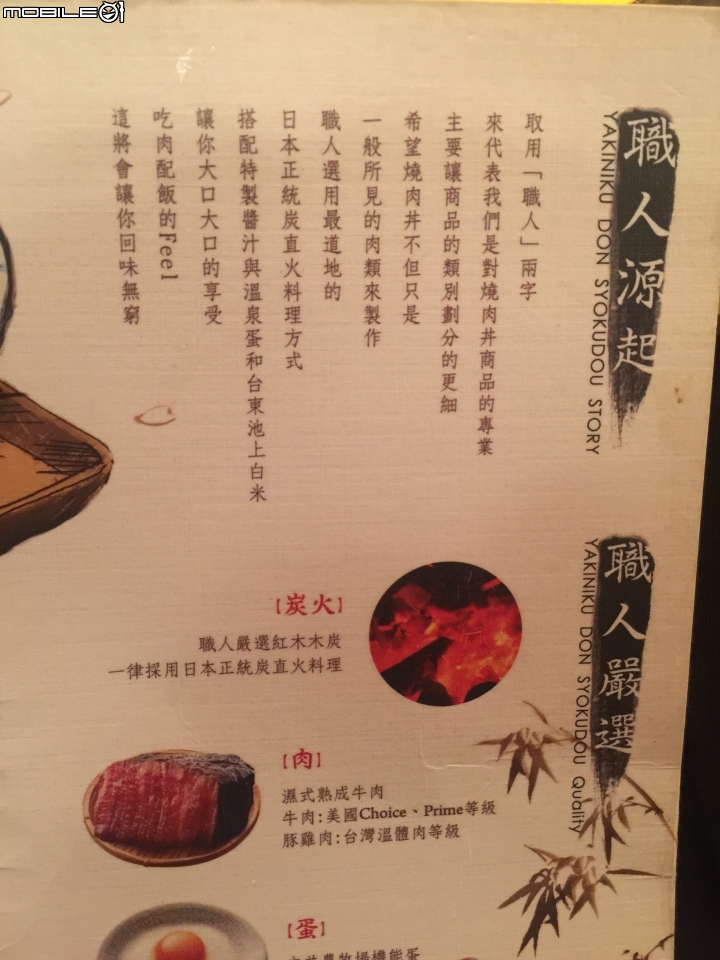 MOBILE01
職人源起
YAKINIKU DON SYOKUDOU STORY
取用「職人」兩字
來代表我們是對燒肉丼商品的專業
主要讓商品的類別劃分的更細
希望燒肉丼不但只是
一般所見的肉類來製作
職人選用最道地的
日本正統炭直火料理方式
搭配特製醬汁與溫泉蛋和台東池上白米
讓你大口大口的享受
吃肉配飯的Feel
這將會讓你回味無窮
職人嚴選
YAKINIKU DON SYOKUDOU Quality
【炭火】
職人嚴選紅木木炭
一律採用日本正統炭直火料理
【肉】
濕式熟成牛肉
牛肉:美國Choice、Prime等級
豚雞肉:台灣溫體肉等級
【蛋】
農牧場機能蛋